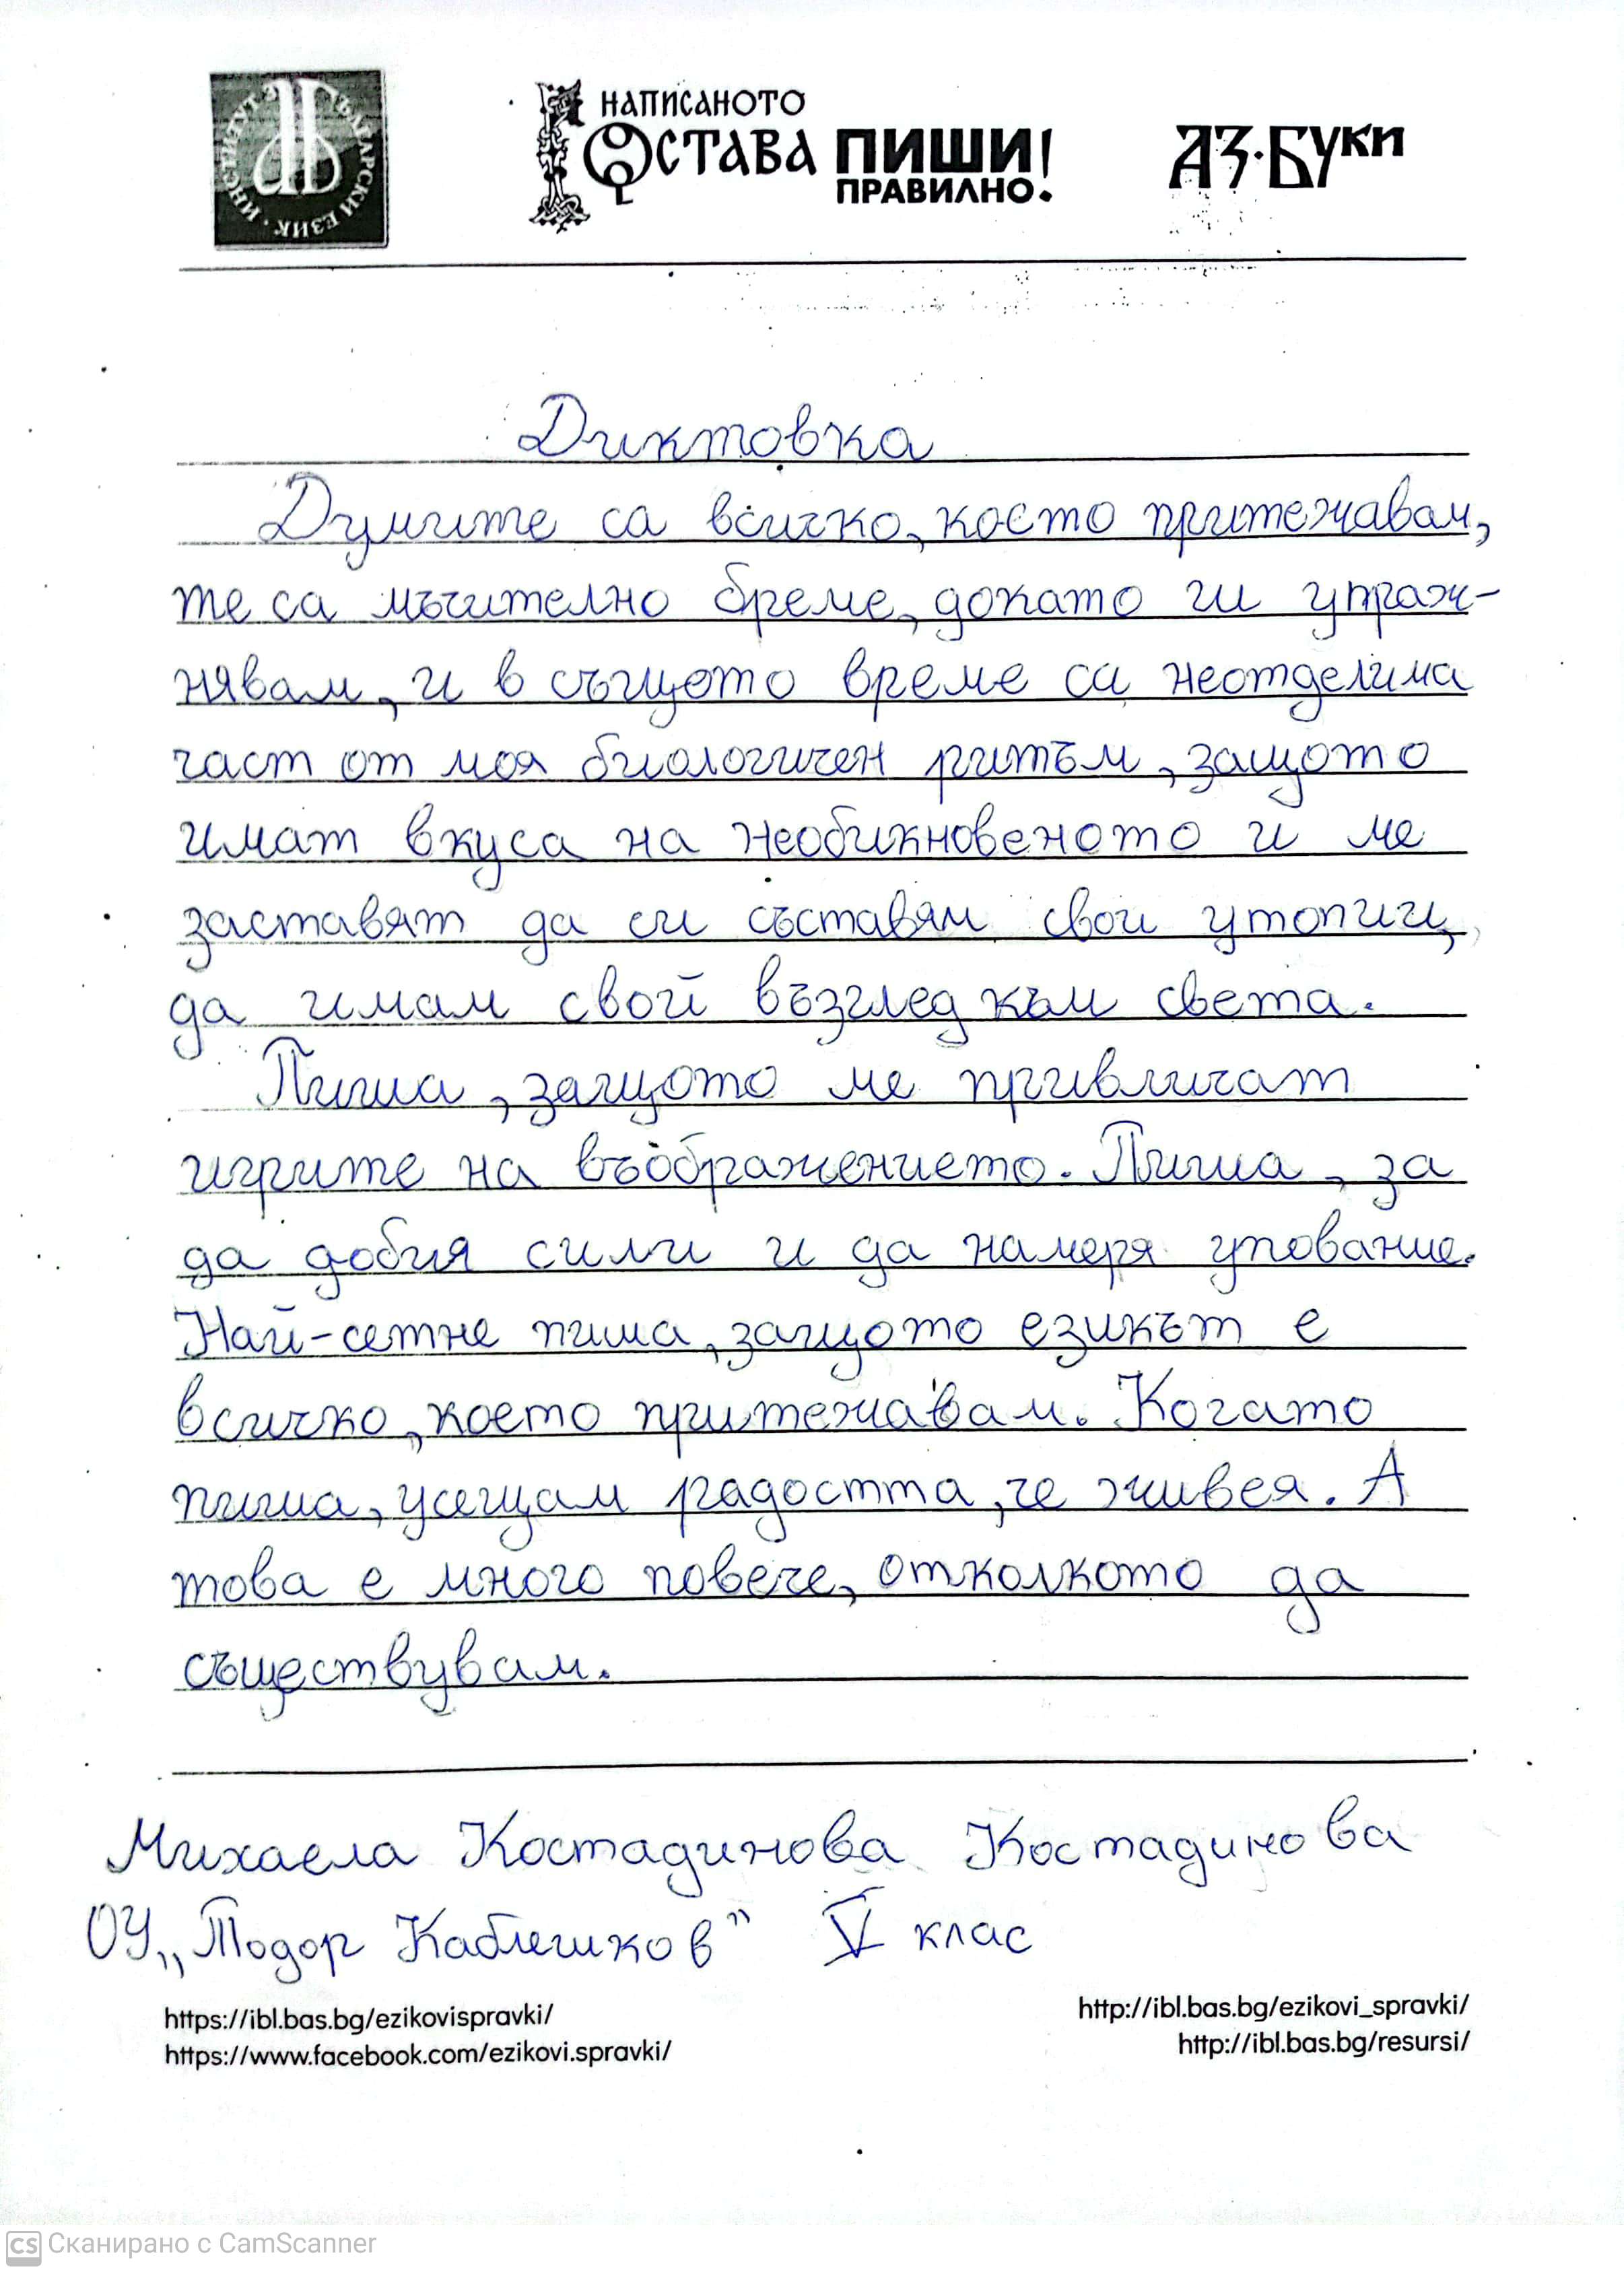 ИНСТИТУТ ЗА БЪЛГАРСКИ ЕЗИК
НАПИСАНОТО
ОСТАВА ПИШИ
ПРАВИЛНО!
АЗ·БУКИ
Диктовка
Думите са всичко, което притежавам,
те са мъчително бреме, докато ги упраж-
нявам, и в същото време са неотделима
част от моя биологичен ритъм, защото
имат вкуса на необикновеното и ме
заставят да си съставям свои утопии,
да имам свой възглед към света.
Пиша, защото ме привличат
игрите на въображението. Пиша, за
да добия сили и да намеря упование.
Най-сетне пиша, защото езикът е
всичко, което притежавам. Когато
пиша, усещам радостта, че живея. А
това е много повече, отколкото да
съществувам.
Михаела Костадинова Костадинова
ОУ „Тодор Каблешков" V клас
https://ibl.bas.bg/ezikovispravki/
http://ibl.bas.bg/ezikovi_spravki/
https://www.facebook.com/ezikovi.spravki/
http://ibl.bas.bg/resursi/
CS Сканирано с CamScanner